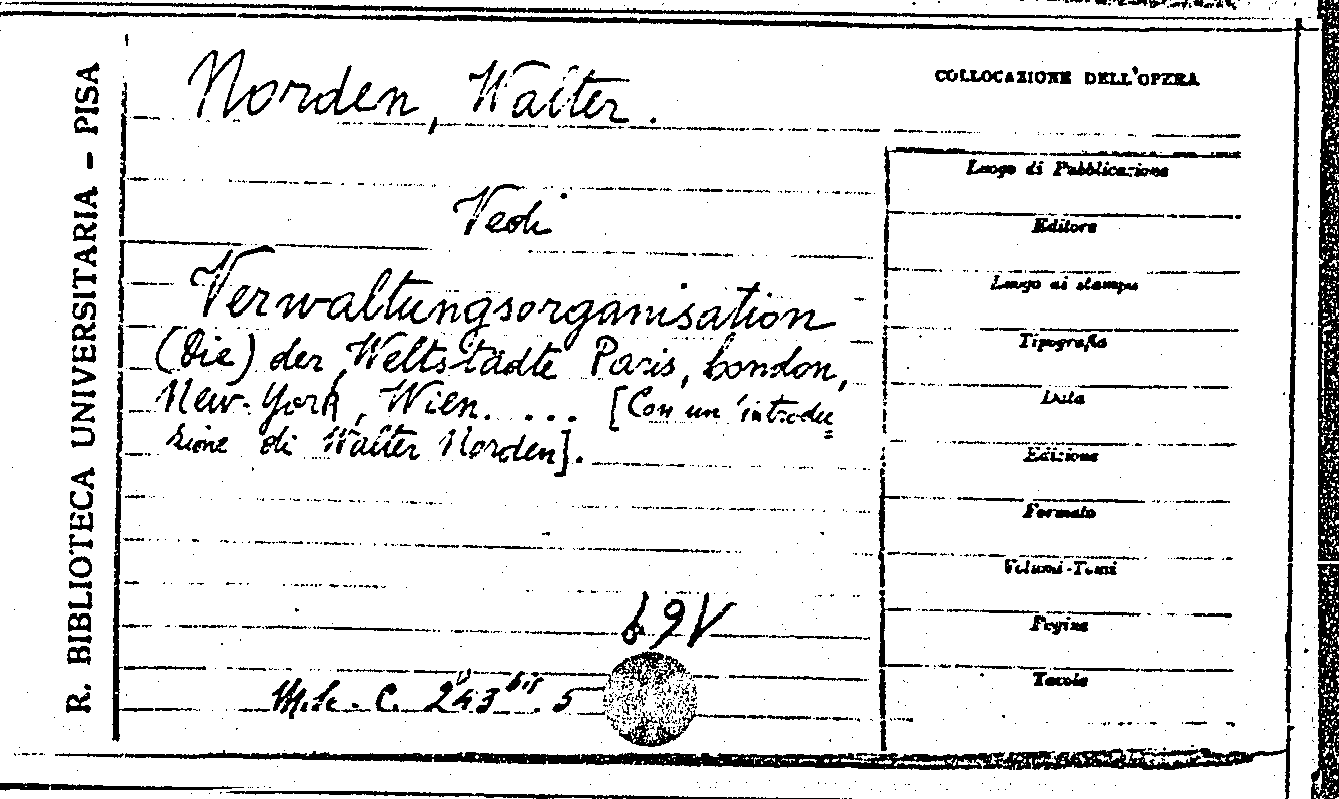 R. BIBLIOTECA UNIVERSITARIA - PISA
Norden, Walter.
Vedi
Verwaltungsorganisation
(Die) der Weltstädte Paris, London,
New-York, Wien. ... [Con un'introdu
zione di Walter Norden].
69V
C. 243 bis. 5
COLLOCAZIONE DELL'OPERA
Luogo di Pubblicazione
Editore
Luogo di stampa
Tipografia
Data
Edizione
Formato
Volumi-Tomi
Pagine
Tavole